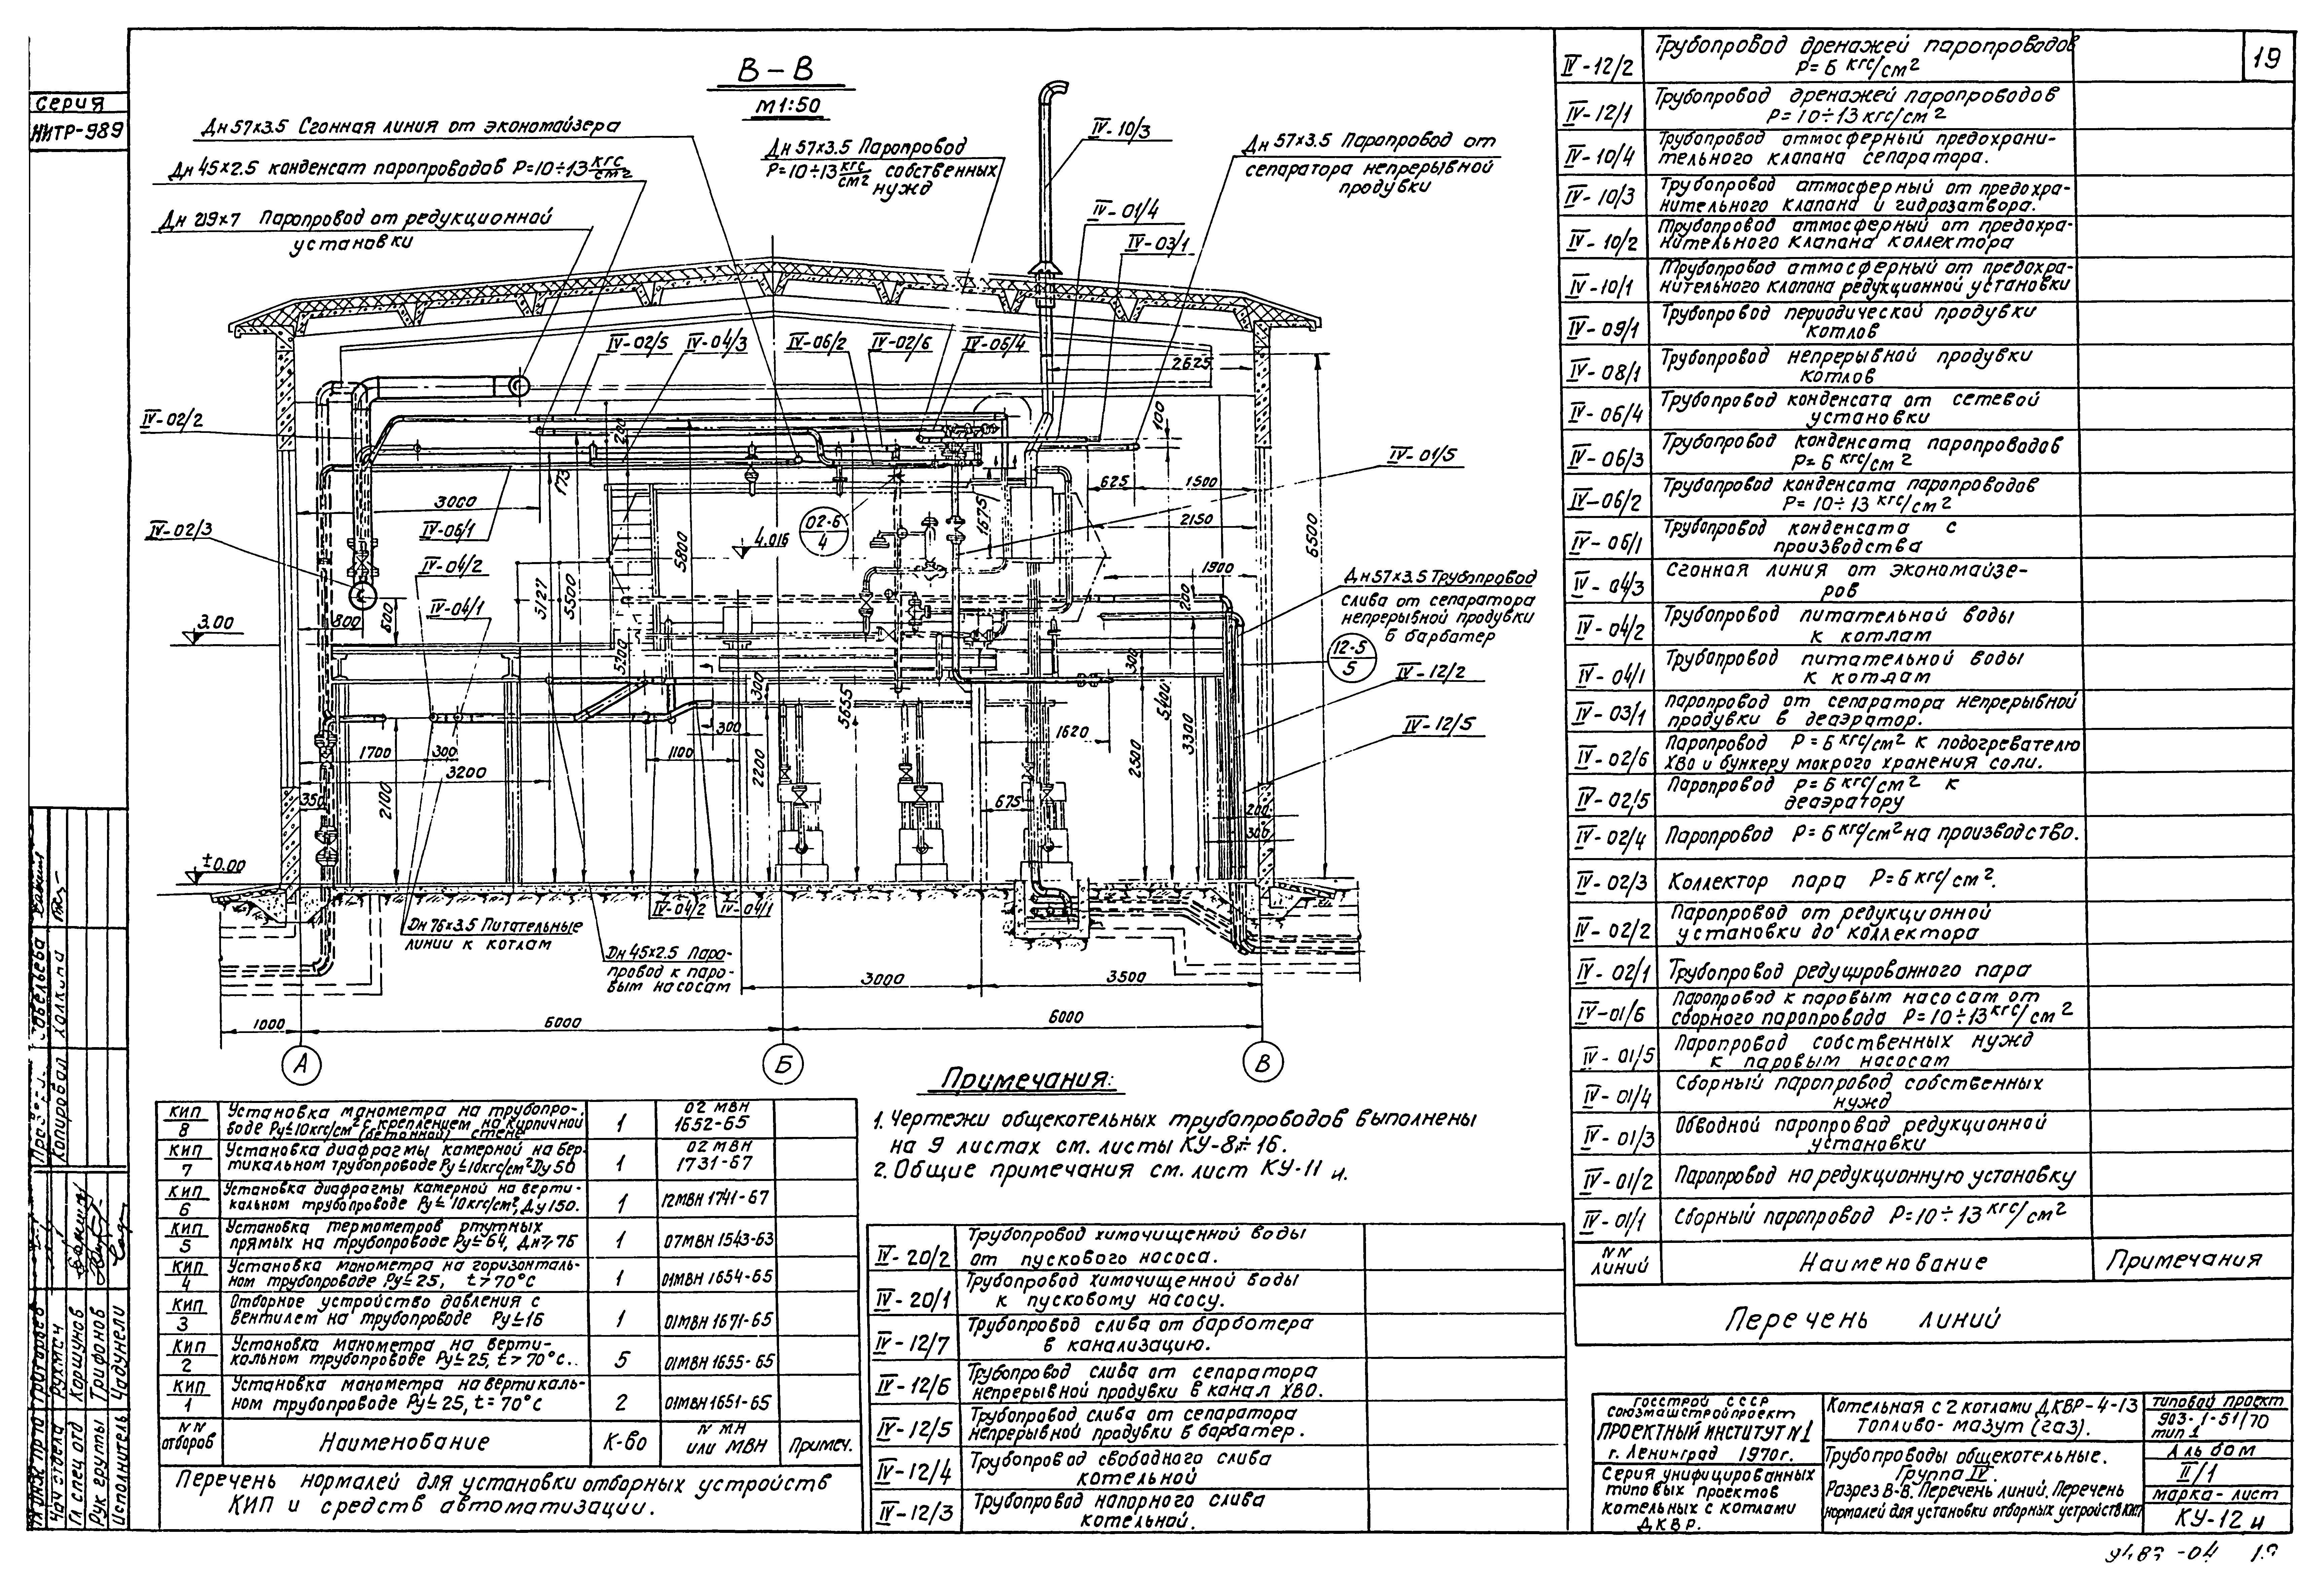 19
Серия
НИТР-989
В-В
М1:50
Дн 57х3.5 Сгонная линия от экономайзера
Дн 45х2.5 конденсат паропроводов Р=10÷13 кгс/см2
Дн 219х7 Паропровод от редукционной
установки
Дн 57х3.5 Паропровод
Р=10÷13 кгс/см2 собственных
нужд
IV-10/3
Дн 57х3.5 Паропровод от
сепаратора непрерывной
продувки
IV-01/4
IV-03/1
IV-02/5
IV-04/3
IV-06/2
IV-02/6
IV-06/4
2625
IV-02/2
200
100
IV-01/5
173
625
1500
3000
IV-02/3
IV-06/1
02-6
4
4.016
1675
2150
6500
IV-04/2
5800
5127
5500
1900
IV-04/1
Дн 57х3.5 Трубопровод
слива от сепаратора
непрерывной продувки
Б барбатер
200
3.00
800
600
12-5
5
5200
300
300
IV-12/2
5655
5400
3300
IV-12/5
300
1620
1700
300
1100
3200
2200
2500
2100
350
675
200
300
±0.00
IV-04/2
IV-04/1
Дн 76х3.5 Питательные
линии к котлам
Дн 45х2.5 Паро-
провод к паро-
вым насосам
3000
3500
1000
6000
6000
А
Б
В
Примечания:
1. Чертежи общекотельных трубопроводов выполнены
на 9 листах см. листы КУ-8÷16.
2. Общие примечания см. лист КУ-11 и.
КИП 8 Установка манометра на трубопро-
воде Ру≤10кгс/см2 с креплением на кирпичной
(бетонной) стене 1 02 МВН 1652-65
КИП 7 Установка диафрагмы камерной на вер-
тикальном трубопроводе Ру≤10кгс/см2 Dу 50 1 02 МВН 1731-67
КИП 6 Установка диафрагмы камерной на верти-
кальном трубопроводе Ру≤10кгс/см2, Ду150. 1 12МВН 1741-67
КИП 5 Установка термометров ртутных
прямых на трубопроводе Ру≤64, Дн≥76 1 07МВН 1543-63
КИП 4 Установка манометра на горизонталь-
ном трубопроводе Ру≤25, t>70°С 1 01МВН 1654-65
КИП 3 Отборное устройство давления с
вентилем на трубопроводе Ру≤16 1 01МВН 1671-65
КИП 2 Установка манометра на верти-
кальном трубопроводе Ру≤25, t>70°С.. 5 01МВН 1655-65
КИП 1 Установка манометра на вертикаль-
ном трубопроводе Ру≤25, t=70°С 2 01МВН 1651-65
NN отборов Наименование К-во N МН или МВН Примеч.
Перечень нормалей для установки отборных устройств
КИП и средств автоматизации.
IV-20/2 Трубопровод химочищенной воды
от пускового насоса.
IV-20/1 Трубопровод химочищенной воды
к пусковому насосу.
IV-12/7 Трубопровод слива от барбатера
в канализацию.
IV-12/6 Трубопровод слива от сепаратора
непрерывной продувки в канал ХВО.
IV-12/5 Трубопровод слива от сепаратора
непрерывной продувки в барбатер.
IV-12/4 Трубопровод свободного слива
котельной
IV-12/3 Трубопровод напорного слива
котельной.
IV-12/2 Трубопровод дренажей паропроводов
Р=6 кгс/см2
IV-12/1 Трубопровод дренажей паропроводов
Р=10÷13 кгс/см2
IV-10/4 Трубопровод атмосферный предохрани-
тельного клапана сепаратора.
IV-10/3 Трубопровод атмосферный от предохра-
нительного клапана и гидрозатвора.
IV-10/2 Трубопровод атмосферный от предохра-
нительного клапана коллектора
IV-10/1 Трубопровод атмосферный от предохра-
нительного клапана редукционной установки
IV-09/1 Трубопровод периодической продувки
котлов
IV-08/1 Трубопровод непрерывной продувки
котлов
IV-06/4 Трубопровод конденсата от сетевой
установки
IV-06/3 Трубопровод конденсата паропроводов
Р=6 кгс/см2
IV-06/2 Трубопровод конденсата паропроводов
Р=10÷13 кгс/см2
IV-06/1 Трубопровод конденсата с
производства
IV-04/3 Сгонная линия от экономайзе-
ров
IV-04/2 Трубопровод питательной воды
к котлам
IV-04/1 Трубопровод питательной воды
к котлам
IV-03/1 Паропровод от сепаратора непрерывной
продувки в деаэратор.
IV-02/6 Паропровод Р=6 кгс/см2 к подогревателю
ХВО и бункеру мокрого хранения соли.
IV-02/5 Паропровод Р=6 кгс/см2 к
деаэратору
IV-02/4 Паропровод Р=6 кгс/см2 на производство.
IV-02/3 Коллектор пара Р=6 кгс/см2.
IV-02/2 Паропровод от редукционной
установки до коллектора
IV-02/1 Трубопровод редуцированного пара
IV-01/6 Паропровод к паровым насосам от
сборного паропровода Р=10÷13 кгс/см2
IV-01/5 Паропровод собственных нужд
к паровым насосам
IV-01/4 Сборный паропровод собственных
нужд
IV-01/3 Обводной паропровод редукционной
установки
IV-01/2 Паропровод на редукционную установку
IV-01/1 Сборный паропровод Р=10÷13 кгс/см2
NN линий Наименование Примечания
Перечень линий
Госстрой СССР
Союзмашстройпроект
ПРОЕКТНЫЙ ИНСТИТУТ N1
г. Ленинград 1970г.
Серия унифицированных
типовых проектов
котельных с котлами
ДКВР.
Котельная с 2 котлами ДКВР-4-13
Топливо-мазут (газ).
Трубопроводы общекотельные.
Группа IV.
Разрез В-В. Перечень линий. Перечень
нормалей для установки отборных устройств КИП
типовой проект
903-1-51/70
тип 1
Альбом
II/1
марка-лист
КУ-12 и
Копировал Халкина
Савельева
Нач отдела Рухман
Гл спец отд Коршунов
Рук группы Трифонов
Исполнитель Чадунели